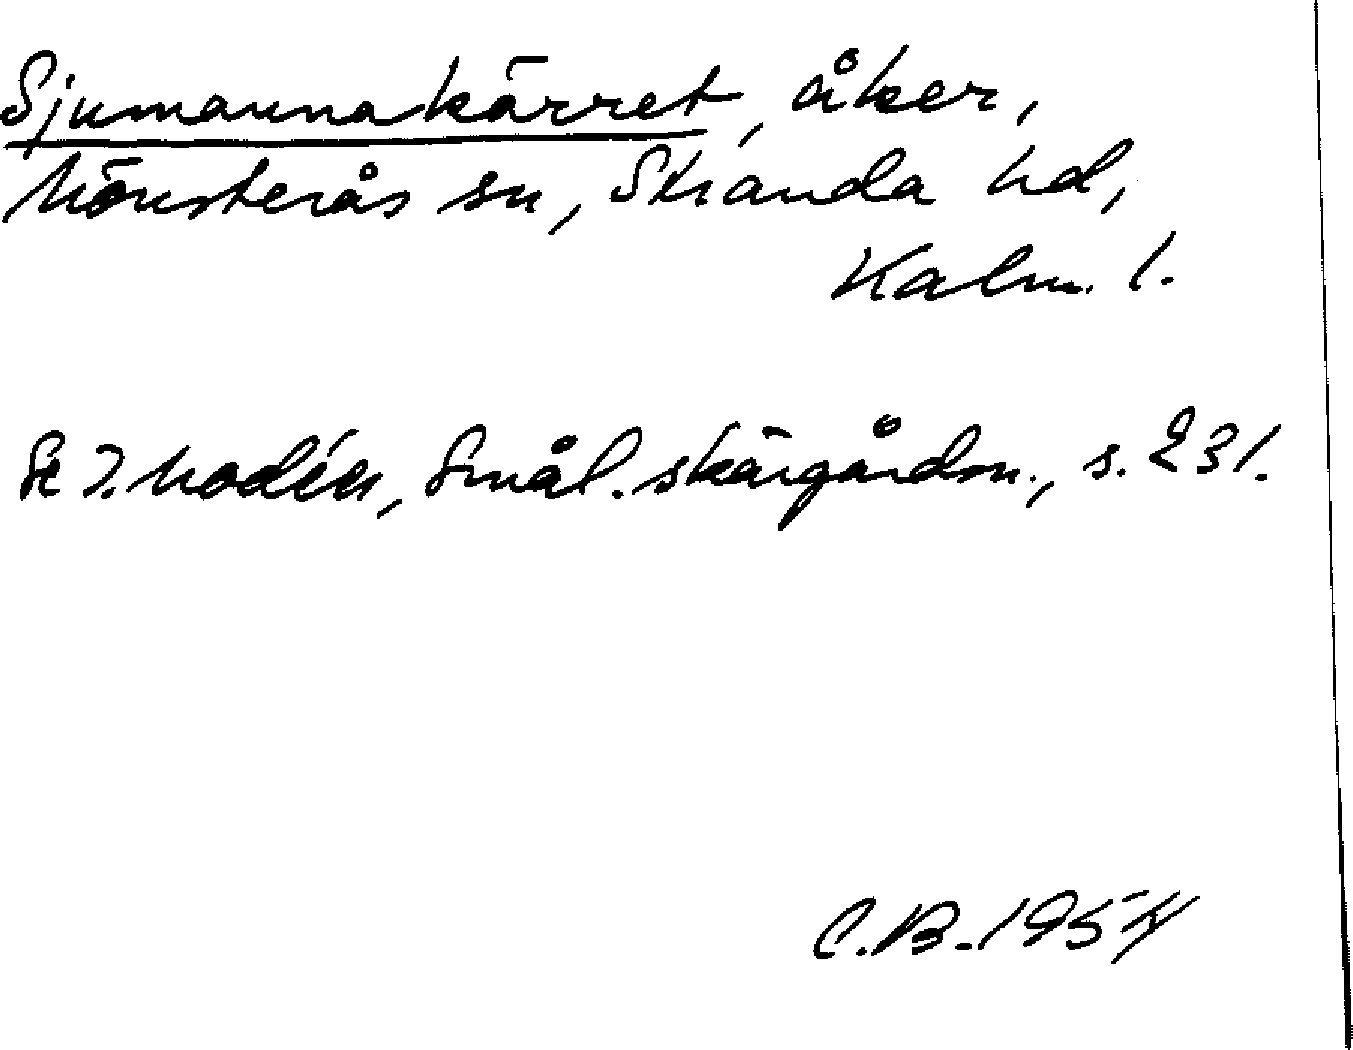 Sjumannakärret, åker,
Mönsterås sn, Stranda hd,
Kalm. l.
Se I. Modéer, Smål. skärgårdsn., s. 231.
C.B. 1954